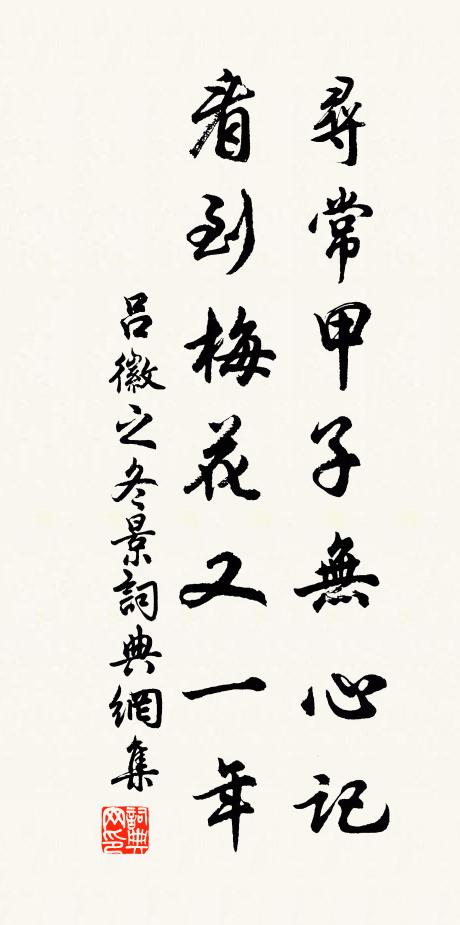 尋常甲子無心記
看到梅花又一年
呂徽之冬景詞典網集
詞典网印